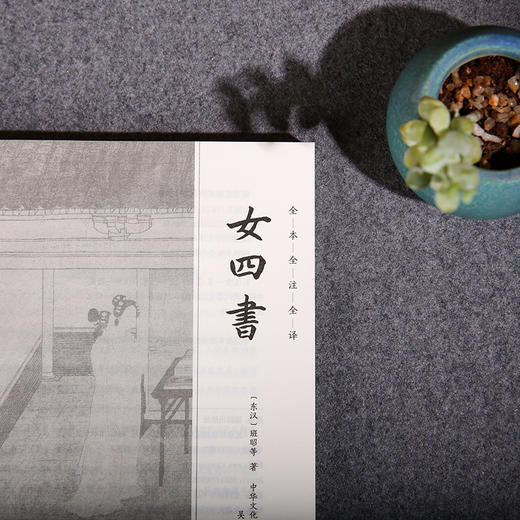 全本全注全译
女四書
〔东汉〕班昭等 著 中华文化
吴